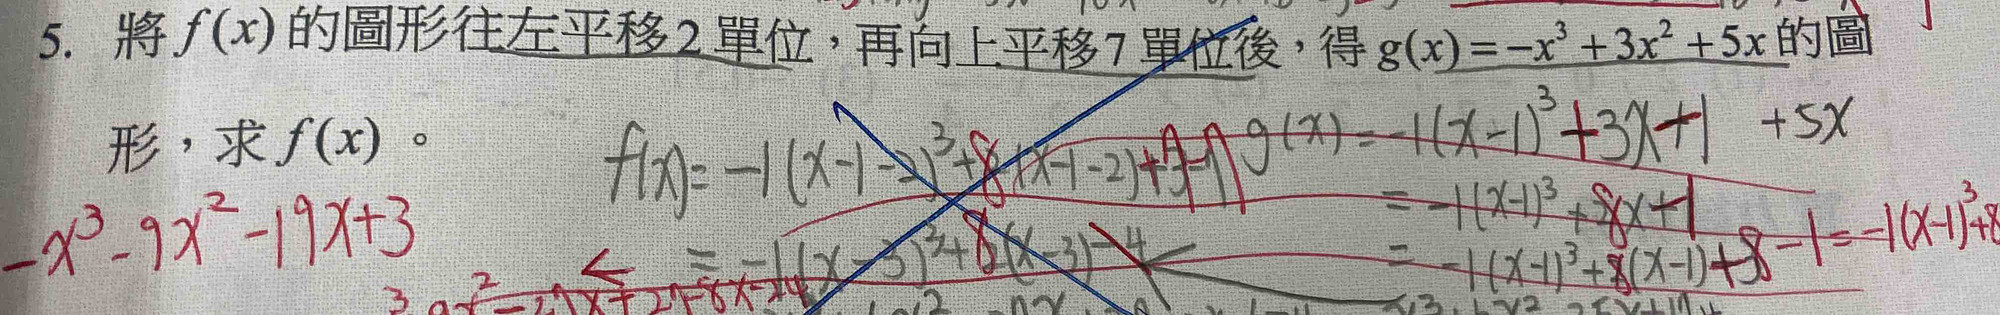 5. 將 f(x) 的圖形往左平移 2 單位，再向上平移 7 單位後，得 g(x) = -x³ + 3x² + 5x 的圖
形，求 f(x)。
g(x) = -1(x-1)³ + 3x + 1 + 5x
= -1(x-1)³ + 8x + 1
= -1(x-1)³ + 8(x-1) + 8 - 1 = -1(x-1)³ + 8
f(x) = -1(x-1-2)³ + 8(x-1-2)
= -1(x-3)³ + 8(x-3) - 4
-x³ - 9x² - 19x + 3